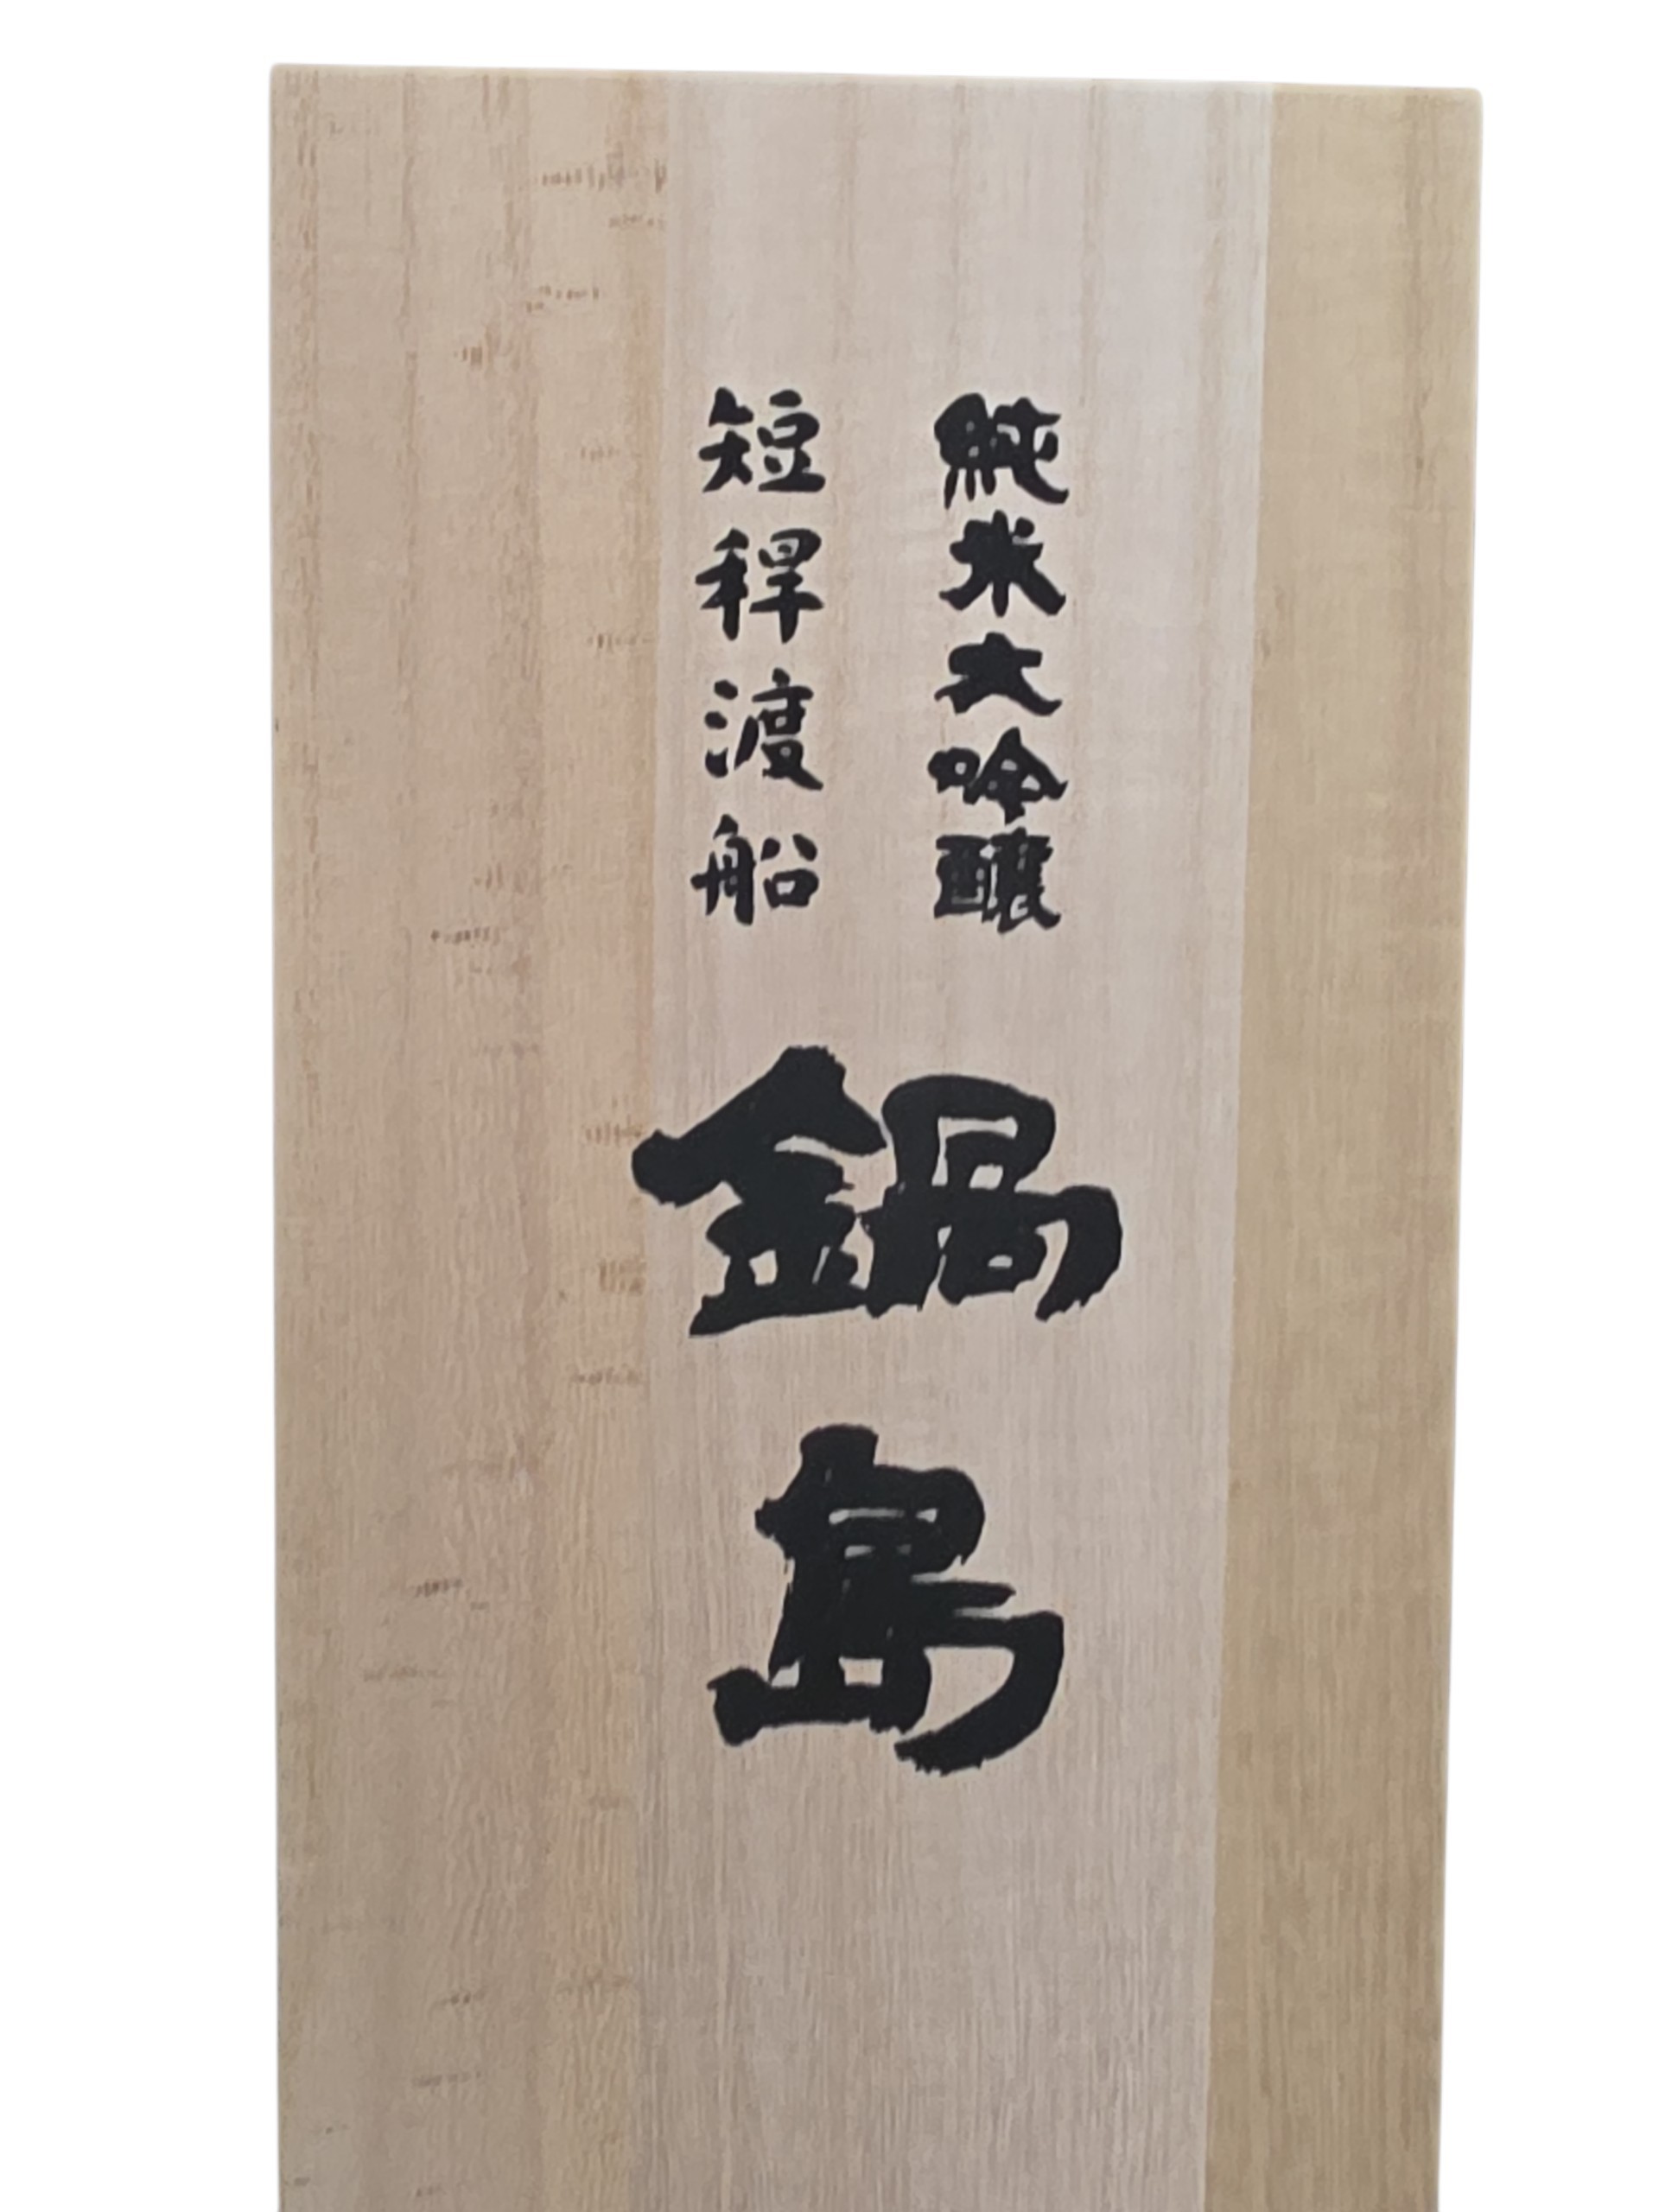 純米大吟醸
短稈渡船
鍋島